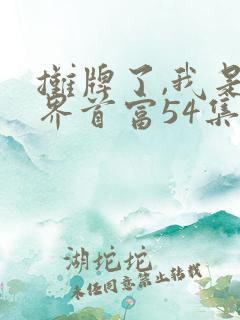 摊牌了,我是
界首富54集
湖坨坨
未经同意禁止转载